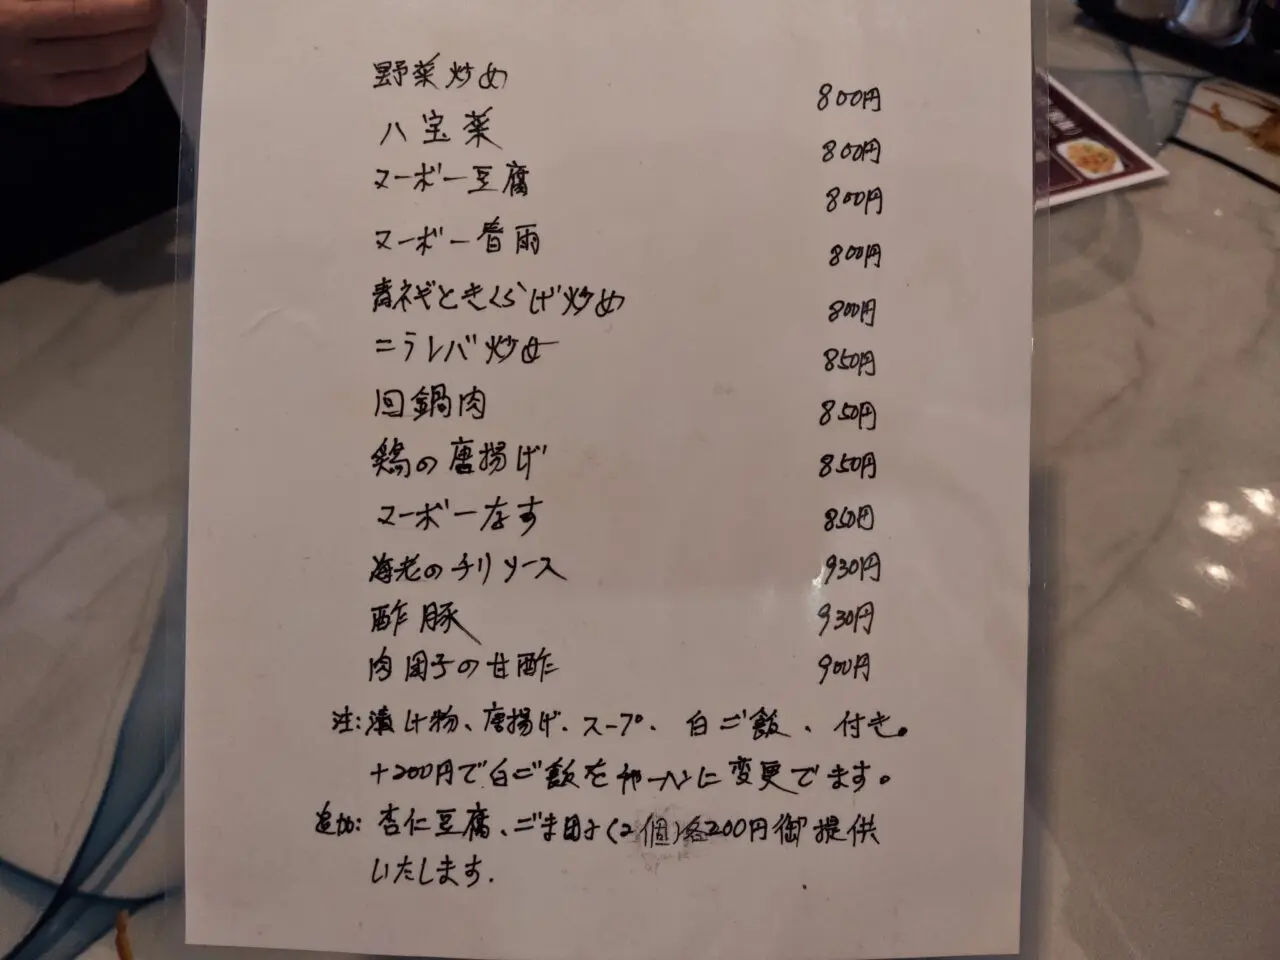 野菜炒め 800円
八宝菜 800円
マーボー豆腐 800円
マーボー春雨 800円
青ネギときくらげ炒め 800円
ニラレバ炒め 850円
回鍋肉 850円
鶏の唐揚げ 850円
マーボーなす 850円
海老のチリソース 930円
酢豚 930円
肉団子の甘酢 900円
注:漬け物、唐揚げ、スープ、白ご飯、付き。
+200円で白ご飯をチャーハンに変更できます。
追加:杏仁豆腐、ごま団子(2個)各200円御提供
いたします.